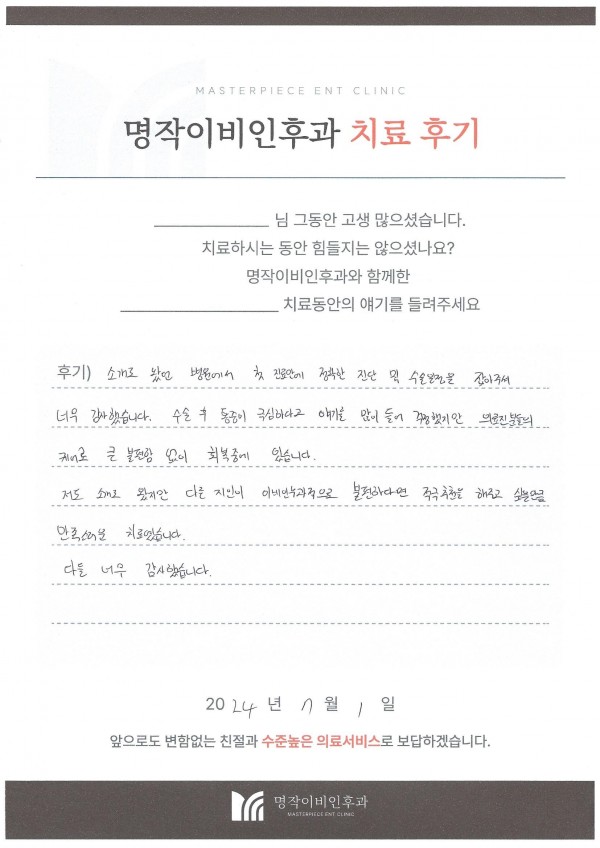 MASTERPIECE ENT CLINIC
명작이비인후과 치료 후기
님 그동안 고생 많으셨습니다.
치료하시는 동안 힘들지는 않으셨나요?
명작이비인후과와 함께한
치료동안의 얘기를 들려주세요
후기) 소개로 왔던 병원에서 첫 진료만에 정확한 진단 및 수술날짜를 잡아주셔
너무 감사했습니다. 수술 후 통증이 극심하다고 얘기를 많이 들어 걱정했지만 의료진분들의
케어로 큰 불편함 없이 회복중에 있습니다.
저도 소개로 왔지만 다른 지인이 이비인후과적으로 불편하다면 적극추천을 해주고 싶을만큼
만족스러운 치료였습니다.
다들 너무 감사했습니다.
2024년 7월 1일
앞으로도 변함없는 친절과 수준높은 의료서비스로 보답하겠습니다.
명작이비인후과
MASTERPIECE ENT CLINIC